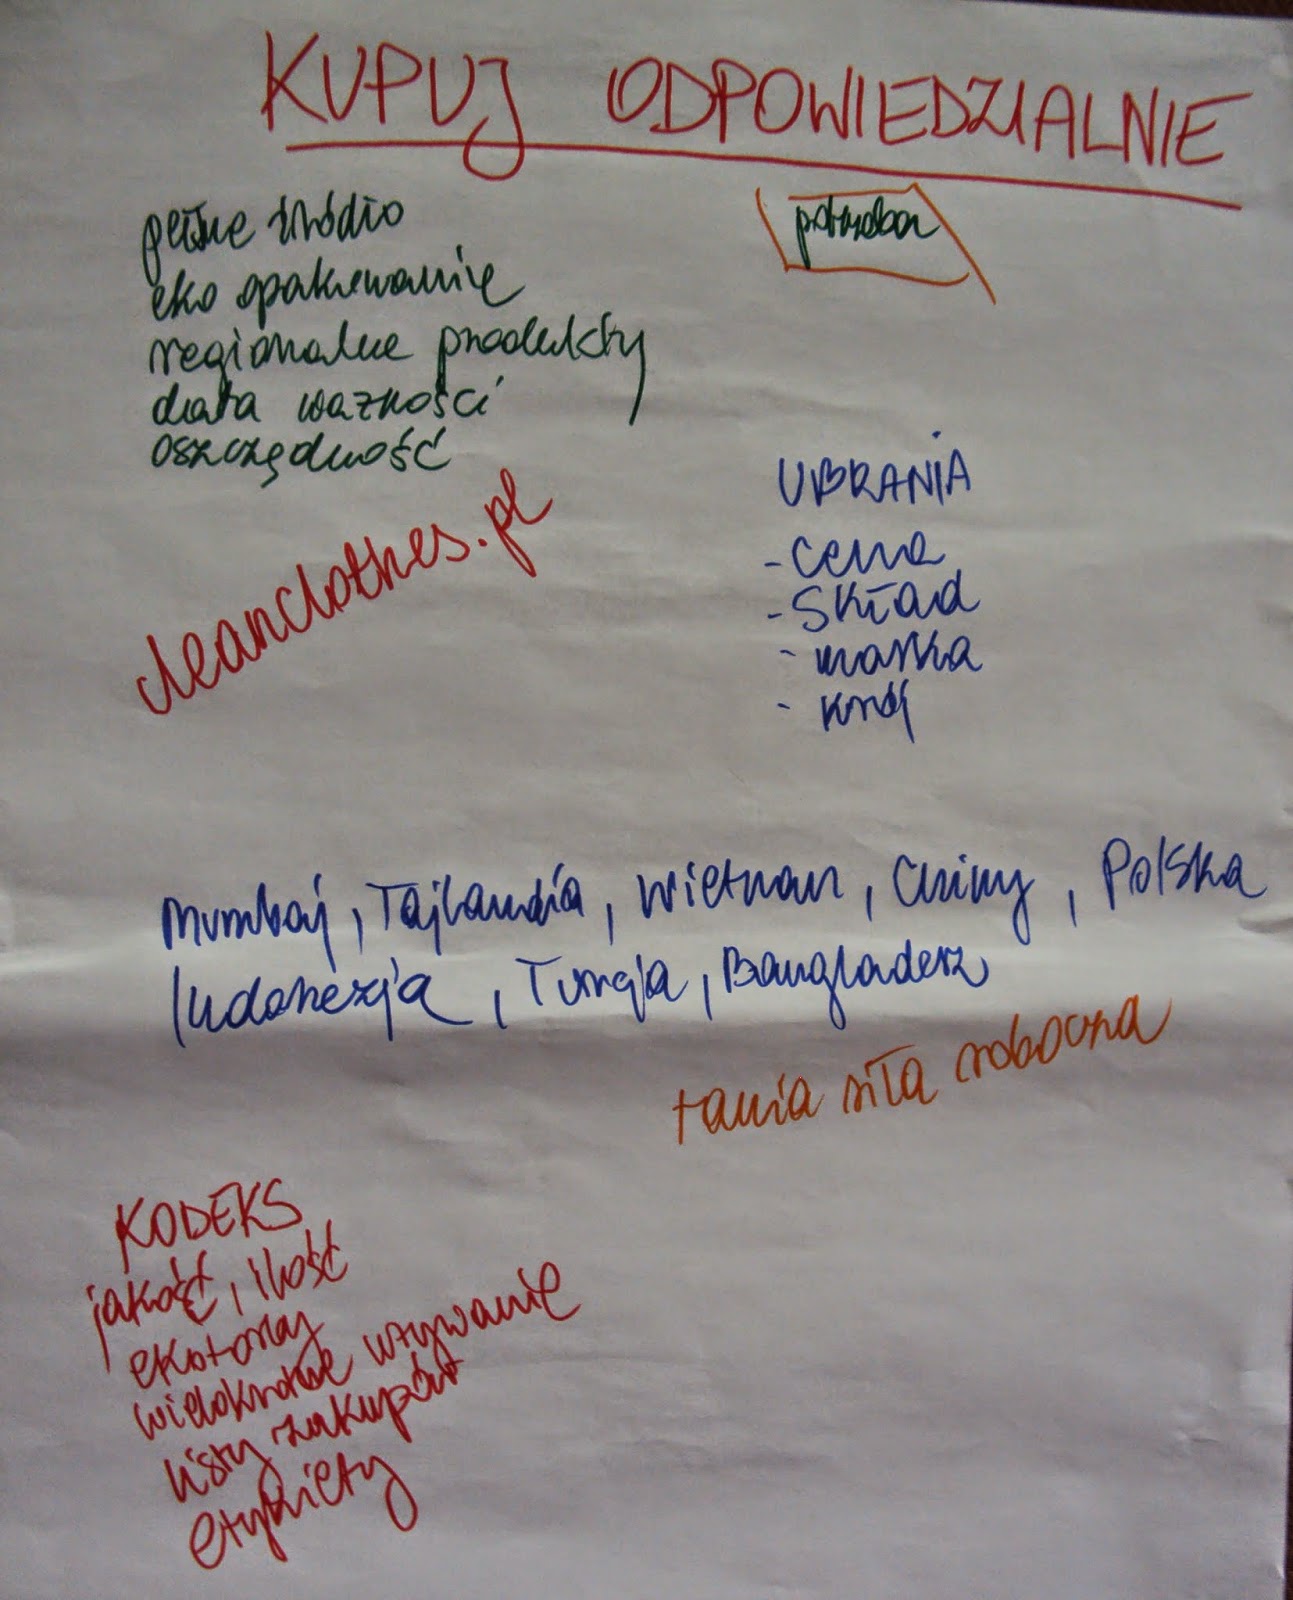 KUPUJ ODPOWIEDZIALNIE
pewne źródło
eko opakowanie
regionalne produkty
data ważności
oszczędność
potrzeba
cleanclothes.pl
UBRANIA
- cena
- skład
- marka
- krój
Mumbaj, Tajlandia, Wietnam, Chiny, Polska
Indonezja, Turcja, Bangladesz
tania siła robocza
KODEKS
jakość, ilość
ekotorby
wielokrotne używanie
listy zakupów
etykiety